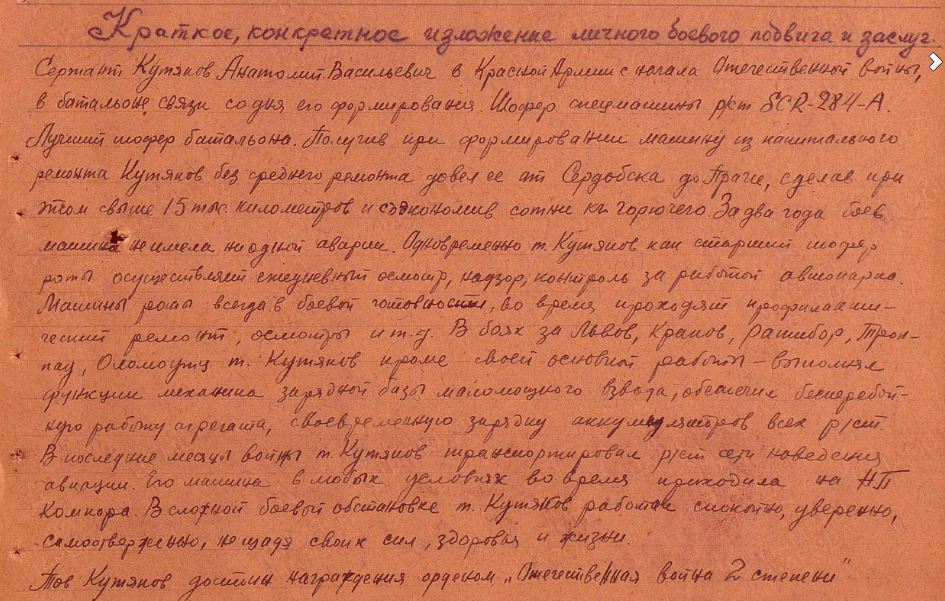 Краткое, конкретное изложение личного боевого подвига и заслуг.
Сержант Кутяков Анатолий Васильевич в Красной Армии с начала Отечественной войны,
в батальоне связи со дня его формирования. Шофер спецмашины р/ст SCR-284-А.
Лучший шофер батальона. Получив при формировании машину из капитального
ремонта Кутяков без среднего ремонта довел ее от Сердобска до Праги, сделав при
этом свыше 15 тыс. километров и сэкономив сотни кг горючего. За два года боев
машина не имела ни одной аварии. Одновременно т. Кутяков как старший шофер
роты осуществляет ежедневный осмотр, надзор, контроль за работой автопарка.
Машины роты всегда в боевой готовности, во время проходят профилакти-
ческий ремонт, осмотры и т.д. В боях за Львов, Краков, Ратибор, Троп-
пау, Оломоутц т. Кутяков кроме своей основной работы - выполнял
функции механика зарядной базы маломощного взвода, обеспечил бесперебой-
ную работу агрегата, своевременную зарядку аккумуляторов всех р/ст.
В последние месяцы войны т. Кутяков транспортировал р/ст сети наведения
авиации. Его машина в любых условиях во время приходила на НП
Комкора. В сложной боевой обстановке т. Кутяков работал спокойно, уверенно,
самоотверженно, не щадя своих сил, здоровья и жизни.
Тов Кутяков достоин награждения орденом „Отечественная война 2 степени"